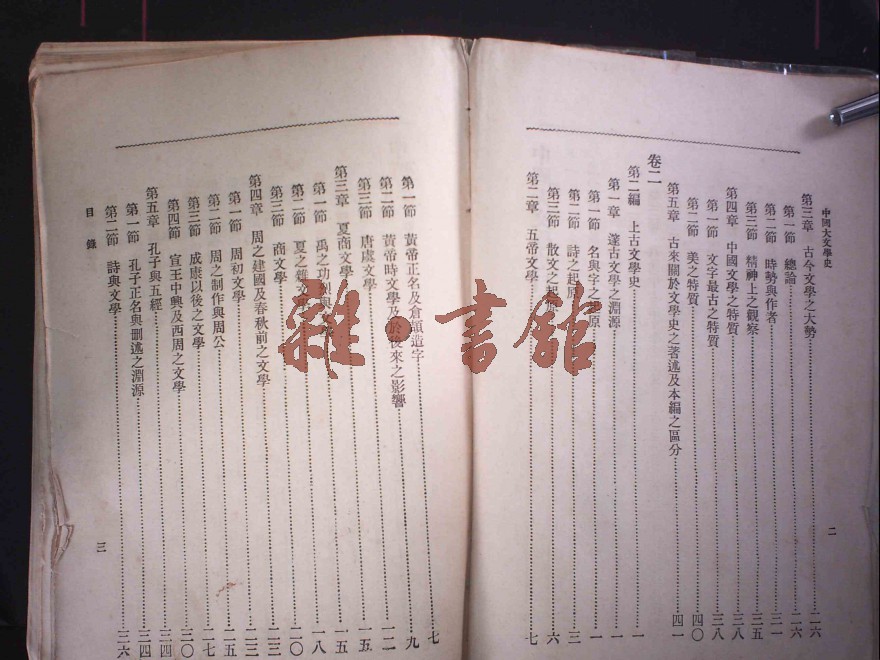 中國大文學史
二
第三章 古今文學之大勢 二六
第一節 總論 二六
第二節 時勢與作者 三一
第三節 精神上之觀察 三五
第四章 中國文學之特質 三八
第一節 文字最古之特質 三八
第二節 美之特質 四〇
第五章 古來關於文學史之著述及本編之區分 四一
卷二
第二編 上古文學史 一
第一章 邃古文學之淵源 一
第一節 名與字之起原 一
第二節 詩之起原 三
第三節 散文之起原 六
第二章 五帝文學 七
第一節 黃帝正名及倉頡造字 七
第二節 黃帝時文學及於後來之影響 九
第三節 唐虞文學 一二
第三章 夏商文學 一五
第一節 禹之功 一五
第二節 夏之雜文 一八
第三節 商文學 二〇
第四章 周之建國及春秋前之文學 二三
第一節 周初文學 二三
第二節 周之制作與周公 二五
第三節 成康以後之文學 二七
第四節 宣王中興及西周之文學 三〇
第五章 孔子與五經 三四
第一節 孔子正名與刪述之淵源 三四
第二節 詩與文學 三六
目錄
三
雜·書館